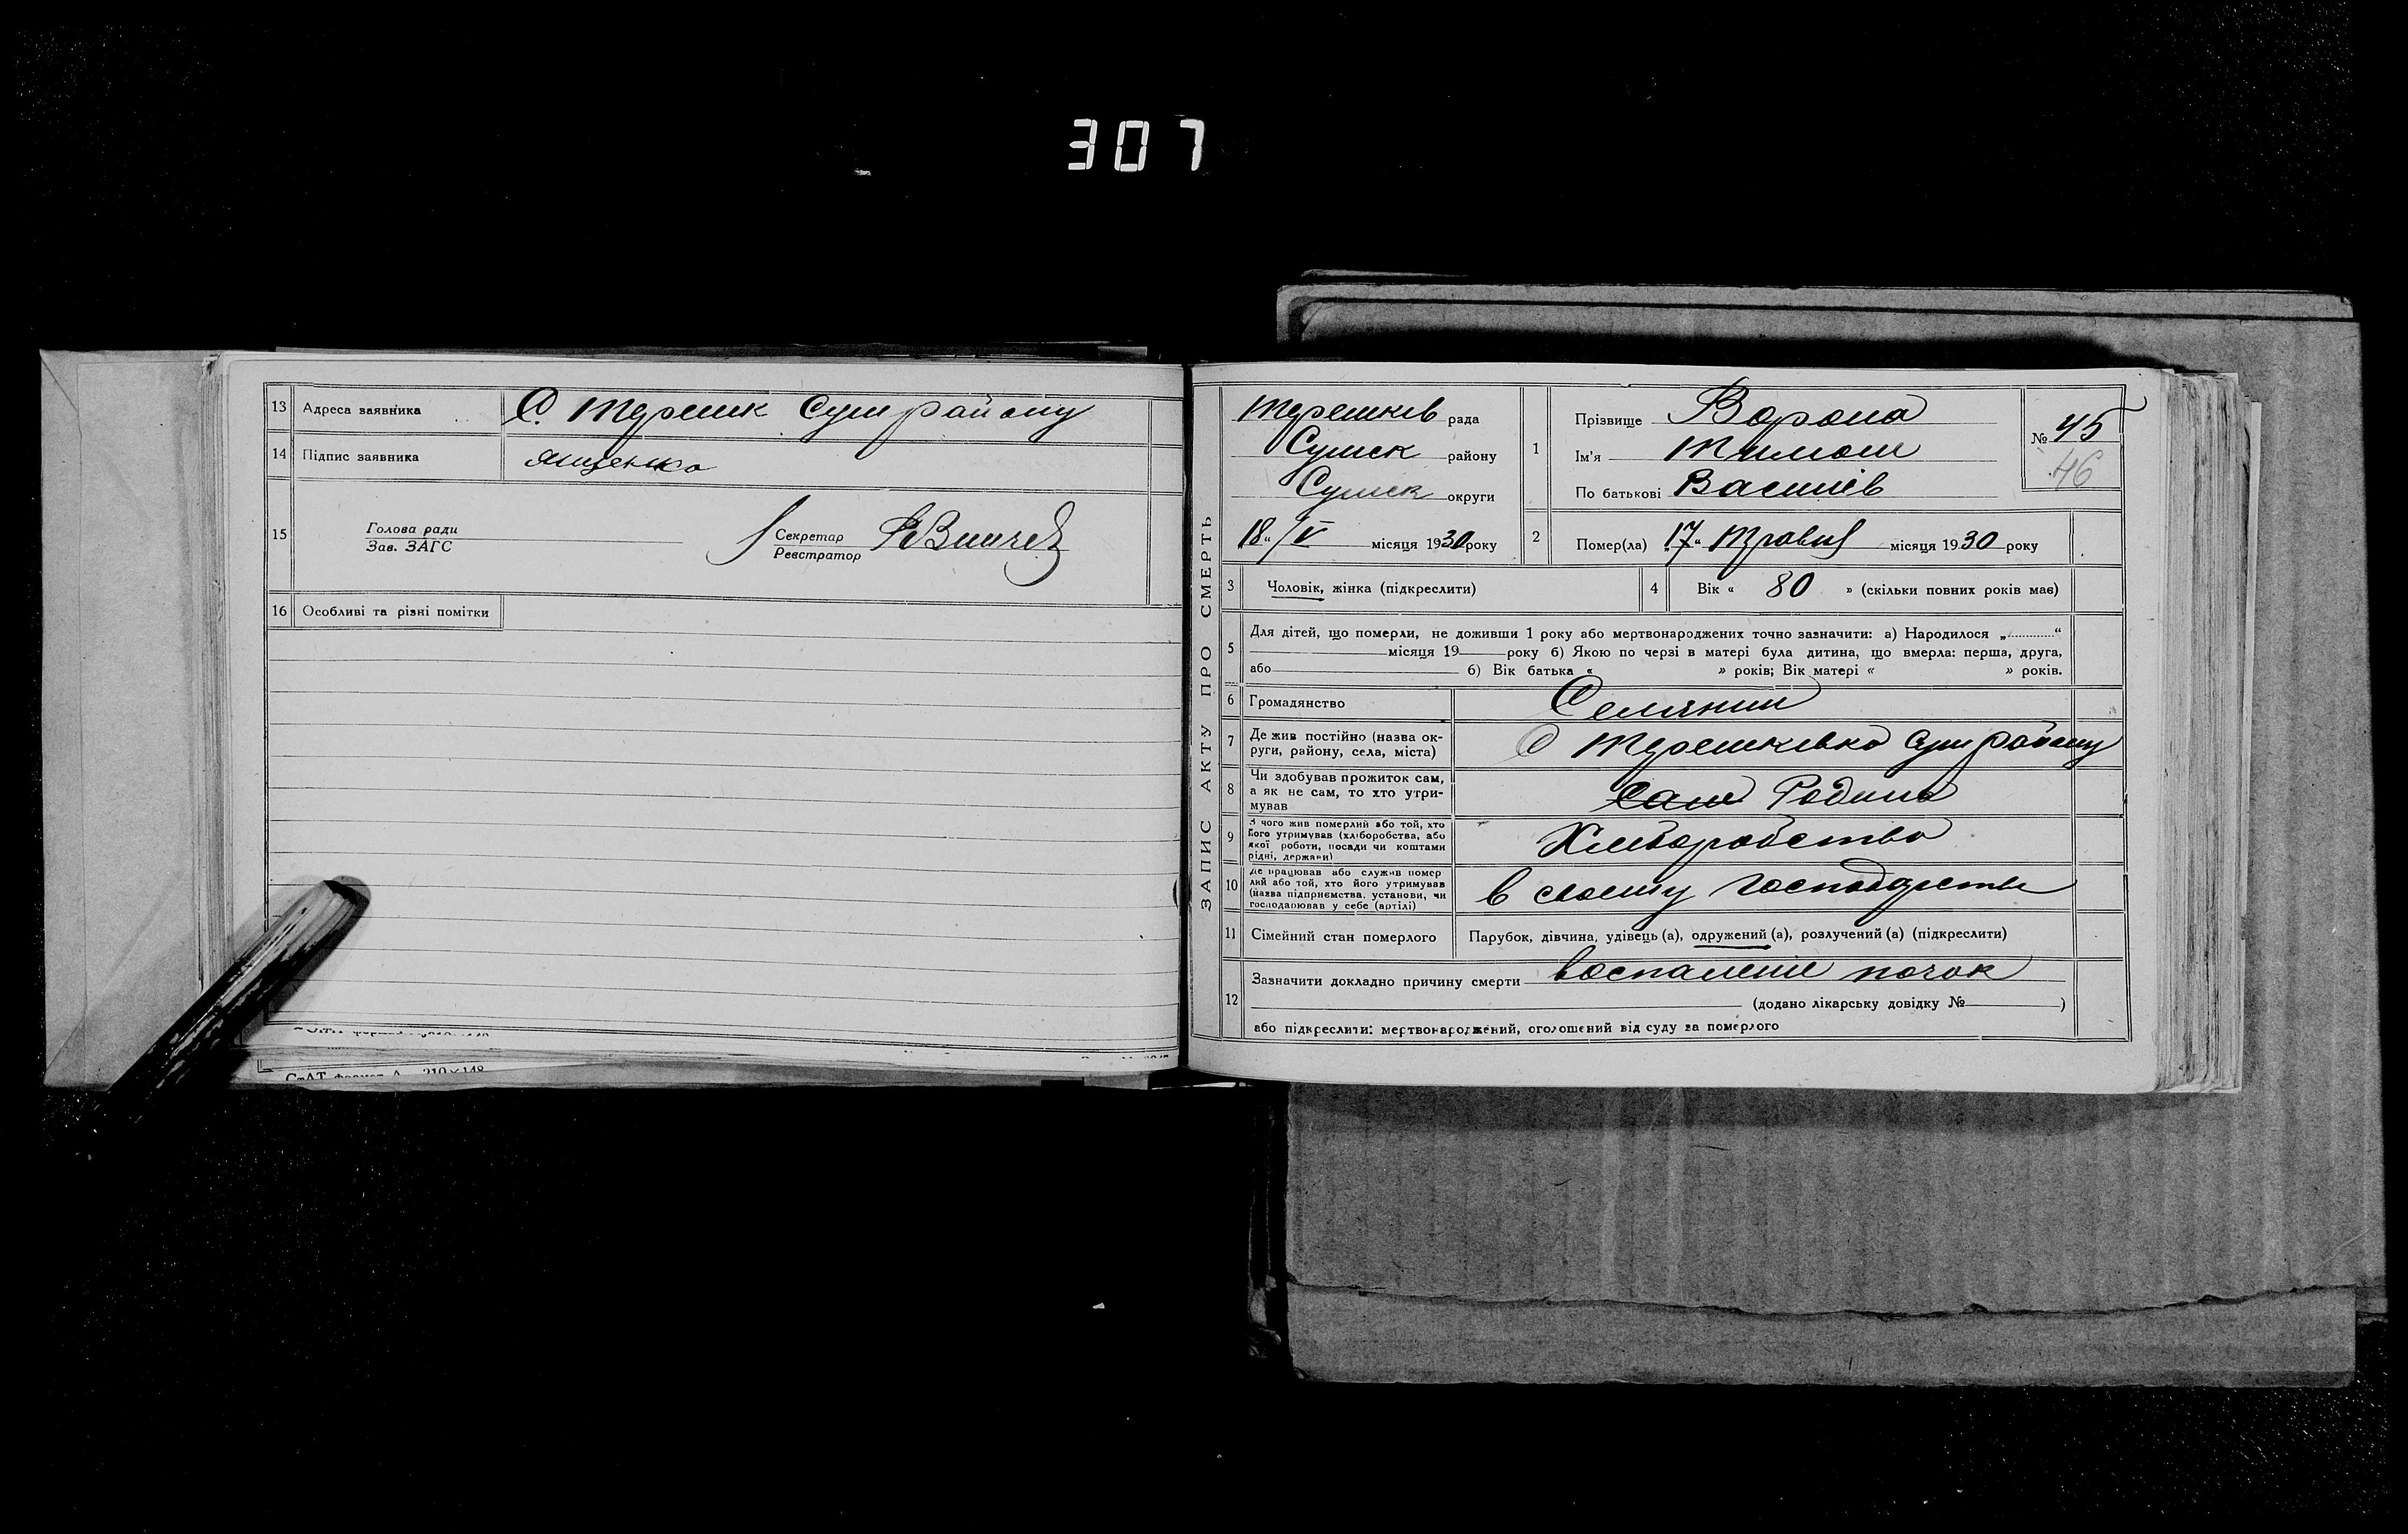 307
13 Адреса заявника С. Терешк Сум району
14 Підпис заявника Ященко
15 Голова ради
Зав. ЗАГС
Секретар
Реєстратор
16 Особливі та різні помітки
ЗАПИС АКТУ ПРО СМЕРТЬ
Терешків рада
Сумск району
Сумск округи
18 "/V місяця 1930 року
1 Прізвище Ворона
Ім'я Тимош
По батькові Василів
№ 45
46
2 Помер(ла) "17" Травня місяця 1930 року
3 Чоловік, жінка (підкреслити)
4 Вік « 80 » (скільки повних років має)
5 Для дітей, що померли, не доживши 1 року або мертвонароджених точно зазначити: а) Народилося „............“
місяця 19 року б) Якою по черзі в матері була дитина, що вмерла: перша, друга,
або б) Вік батька « » років; Вік матері « » років.
6 Громадянство Селянин
7 Де жив постійно (назва округи, району, села, міста) С Терешківка Сум Району
8 Чи здобував прожиток сам,
а як не сам, то хто утри-
мував Сам Родина
9 З чого жив померлий або той, хто
його утримував (хліборобства, або
якої роботи, посади чи коштами
рідні, держави) Хліборобство
10 Де працював або служив помер
лий або той, хто його утримував
(назва підприємства, установи, чи
господарював у себе (артілі) в своєму господарстві
11 Сімейний стан померлого Парубок, дівчина, удівець (а), одружений (а), розлучений (а) (підкреслити)
12 Зазначити докладно причину смерти воспаленіе почок
(додано лікарську довідку № )
або підкреслити: мертвонароджений, оголошений від суду за померлого